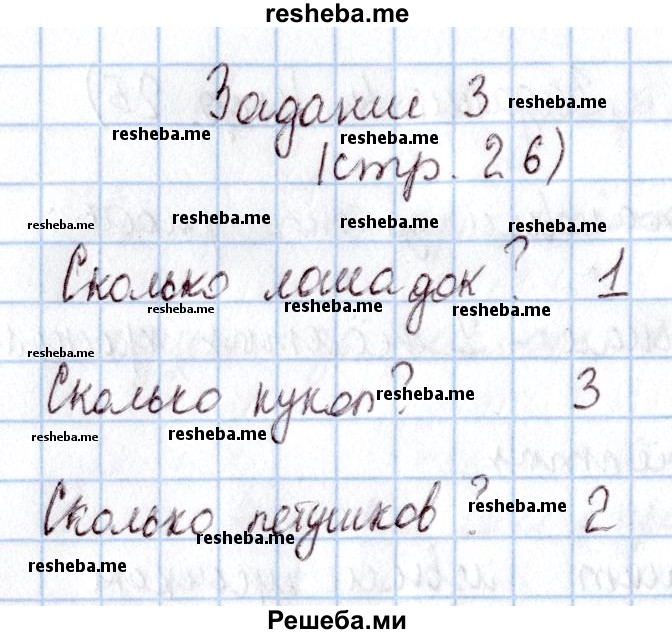 resheba.me
Задание 3 resheba.me
resheba.me resheba.me
(стр. 26)
resheba.me resheba.me resheba.me resheba.me
Сколько лошадок? 1
resheba.me resheba.me resheba.me
resheba.me
Сколько кукол? resheba.me 3
resheba.me resheba.me
Сколько петушков? resheba.me 2
resheba.me
resheba.me
Решеба.ми